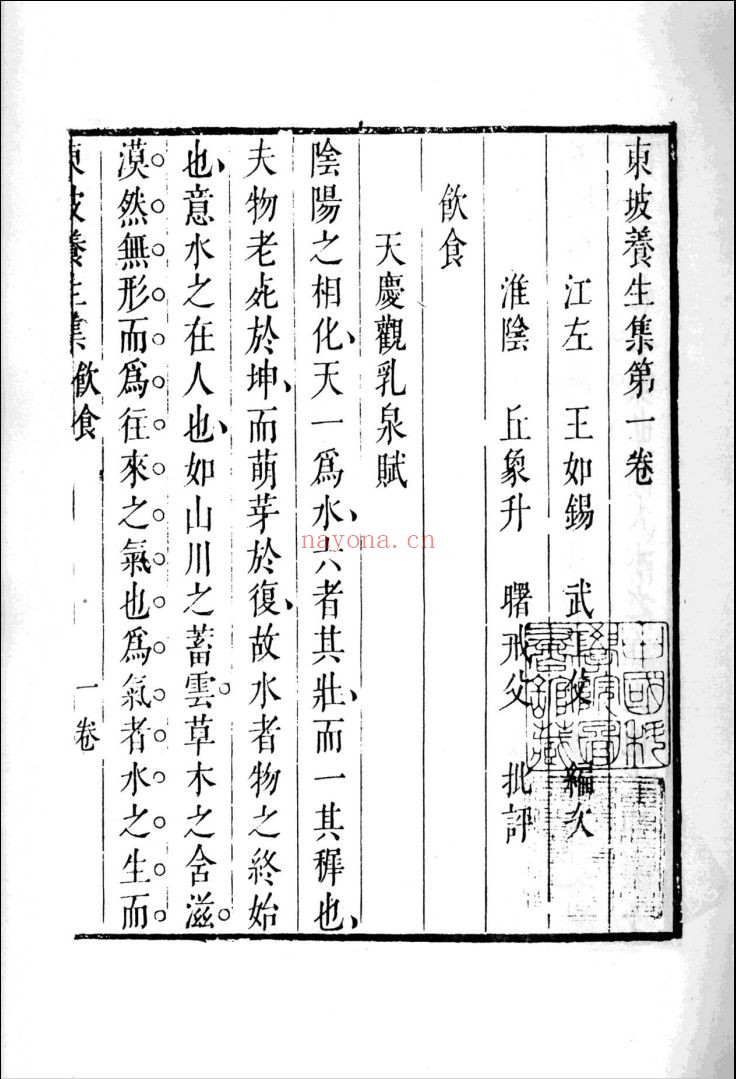 東坡養生集第一卷
江左 王如錫 武工父 編次
淮陰 丘象升 曙戒父 批評
飲食
天慶觀乳泉賦
陰陽之相化、天一爲水、六者其壯、而一其穉也、
夫物老死於坤、而萌芽於復、故水者物之終始
也、意水之在人也、如山川之蓄雲。草木之含滋。
漠然無形而爲往來之氣也爲氣者水之生而
東坡養生集 飲食 一卷
nayona.cn